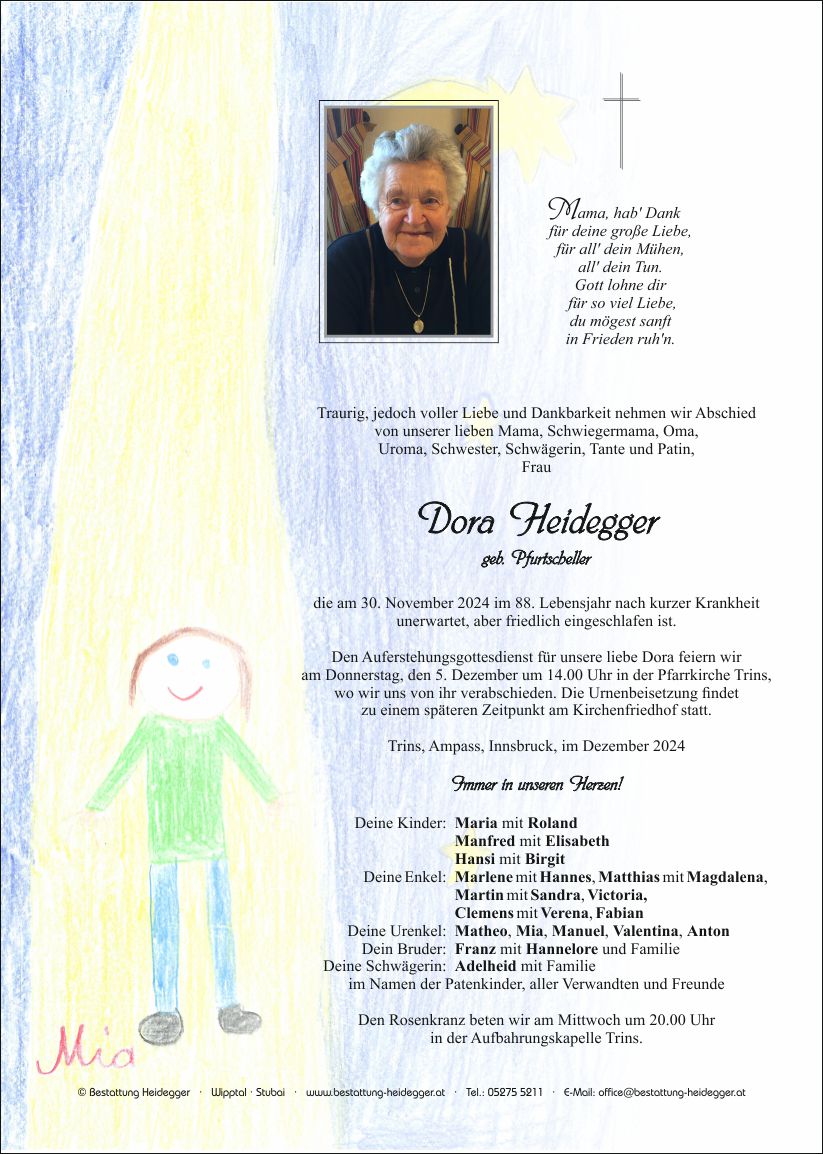 Mama, hab' Dank
für deine große Liebe,
für all' dein Mühen,
all' dein Tun.
Gott lohne dir
für so viel Liebe,
du mögest sanft
in Frieden ruh'n.
Traurig, jedoch voller Liebe und Dankbarkeit nehmen wir Abschied
von unserer lieben Mama, Schwiegermama, Oma,
Uroma, Schwester, Schwägerin, Tante und Patin,
Frau
Dora Heidegger
geb. Pfurtscheller
die am 30. November 2024 im 88. Lebensjahr nach kurzer Krankheit
unerwartet, aber friedlich eingeschlafen ist.
Den Auferstehungsgottesdienst für unsere liebe Dora feiern wir
am Donnerstag, den 5. Dezember um 14.00 Uhr in der Pfarrkirche Trins,
wo wir uns von ihr verabschieden. Die Urnenbeisetzung findet
zu einem späteren Zeitpunkt am Kirchenfriedhof statt.
Trins, Ampass, Innsbruck, im Dezember 2024
Immer in unseren Herzen!
Deine Kinder: Maria mit Roland
Manfred mit Elisabeth
Hansi mit Birgit
Deine Enkel: Marlene mit Hannes, Matthias mit Magdalena,
Martin mit Sandra, Victoria,
Clemens mit Verena, Fabian
Deine Urenkel: Matheo, Mia, Manuel, Valentina, Anton
Dein Bruder: Franz mit Hannelore und Familie
Deine Schwägerin: Adelheid mit Familie
im Namen der Patenkinder, aller Verwandten und Freunde
Den Rosenkranz beten wir am Mittwoch um 20.00 Uhr
in der Aufbahrungskapelle Trins.
Mia
© Bestattung Heidegger · Wipptal · Stubai · www.bestattung-heidegger.at · Tel.: 05275 5211 · E-Mail: office@bestattung-heidegger.at